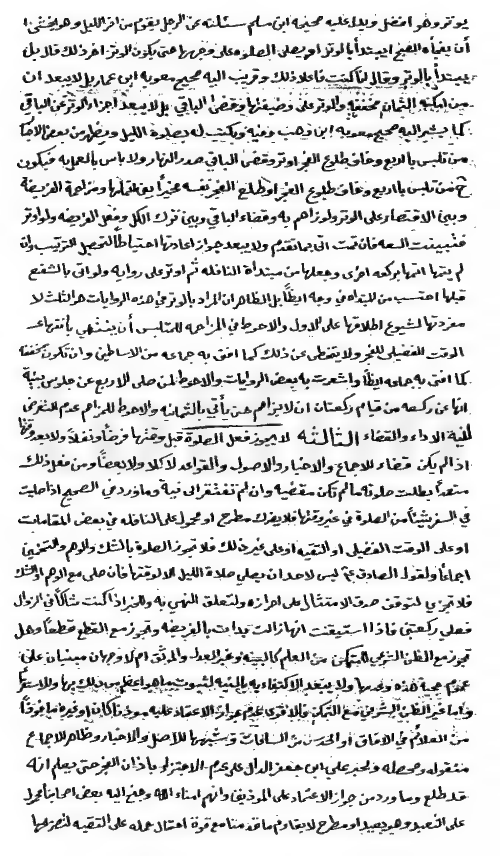 يوتر وهو افضل ويدل عليه صحيحة ابن مسلم سئلته عن الرجل يقوم من اخر الليل وهو يخشى
أن يفجأه الصبح ايبتدأ بالوتر او يصلي الصلوة على وجهها حتى يكون الوتر اخر ذلك قال بل
يبتدأ بالوتر وقال انا كنت فاعلا ذلك وقريب اليه صحيح معوية ابن عمار بل لا يبعد ان
الثمان مخففة والوتر على وقضى الباقي بل لا يبعد اجزاء الوتر عن الباقي
كما يشير اليه صحيح معوية ابن وهب ففيه ويكتب له بصلوة الليل ويظهر من بعض
من تلبس باربع وخاف طلوع الفجر اوتر وقضى الباقي صدر النهار ولا باس بالعمل به فيكون
ح من تلبس باربع وخاف طلوع الفجر او طلع الفجر نفسه مخيرا بين ومزاحمة الفريضة
وبين الاقتصار على الوتر ولوازم به وقضاء الباقي وبين ترك الكل وفعل الفريضة ولو اوتر
فتبينت السعة فان تمت اتى بما تقدم ولا يبعد جواز اعادتها احتياطا لتحصيل الترتيب وان
لم يتمها اتمها بركعة اخرى وجعلها من مبتدأة النافلة ثم اوتر على رواية ولو اتى بالشفع
قبلها احتسب من المبتدأة في وجه ايضا بل الظاهر ان المراد بالوتر في هذه الروايات هو الثلث لا
مفردتها لشيوع اطلاقها على الاول والاحوط في المزاحمة للمتلبس أن ينتهي بانتهاء
الوقت الفضيلي للفجر ولا يتخطى عن ذلك كما افتى به جماعة من الاساطين وان تكون مخففة
كما افتى به جماعة ايضا واشعرت به بعض الروايات والاحوط لمن صلى الاربع عن جلوس بنية
انها عن ركعة من قيام ركعتان ان لا يزاحم حتى يأتي بالثمانية والاحوط للمزاحم عدم التعرض
لنية الاداء والقضاء الثالثة لا يجوز فعل الصلوة قبل وقتها فرضا ونفلا ولا بعد وقتها
اذا لم يكن قضاء للاجماع والاخبار والاصول والقواعد لا كلا ولا بعضا ومن فعل ذلك
متعمدا بطلت صلوته ما لم تكن مقضية وان لم تفتقر الى نية وما ورد في الصحيح اذا صليت
في السفر شيئا من الصلوة في غير وقتها فلا يضرك مطرح او محمول على النافلة في بعض المقامات
او على الوقت الفضيلي او التقية او على غير ذلك فلا تجوز الصلوة بالشك والوهم والتخمين
اجماعا ولقول الصادق ع ليس لاحد ان يصلي صلاة الليل الا لوقتها فان صلى مع الوهم او الشك
فلا تجزي لتوقف صدق الامتثال على احرازه ولتعلق النهي به وللخبر اذا كنت شاكا في الزوال
فصلي ركعتين فاذا استيقنت انها زالت بدأت بالفريضة وتجوز مع القطع قطعا وهل
تجوز مع الظن الشرعي للمتمكن من العلم كالبينة وخبر العدل والموثق ام لا وجهان مبنيان على
عموم حجية هذه وعدمها ولا يبعد الاكتفاء به بالبينة لثبوت ما هو اعظم من ذلك بها
واما غير الظن الشرعي فمع التمكن فالاقوى عدم جواز الاعتماد عليه سوى ما كان او غيره
من العلائم في الافاق او الحدس من الساعات وشبهها للاصل والاخبار وظاهر الاجماع
منقوله ومحصله ولخبر علي ابن جعفر الدال على عدم الاجتزاء باذان الفجر حتى يعلم انه
قد طلع وما ورد من جواز الاعتماد على الموذنين وانهم امناء الله وجنح اليه بعض اصحابنا محمول
على التعبد وهو بعيد او مطرح لا يقاوم ما قدمنا مع قوة احتمال حمله على التقية